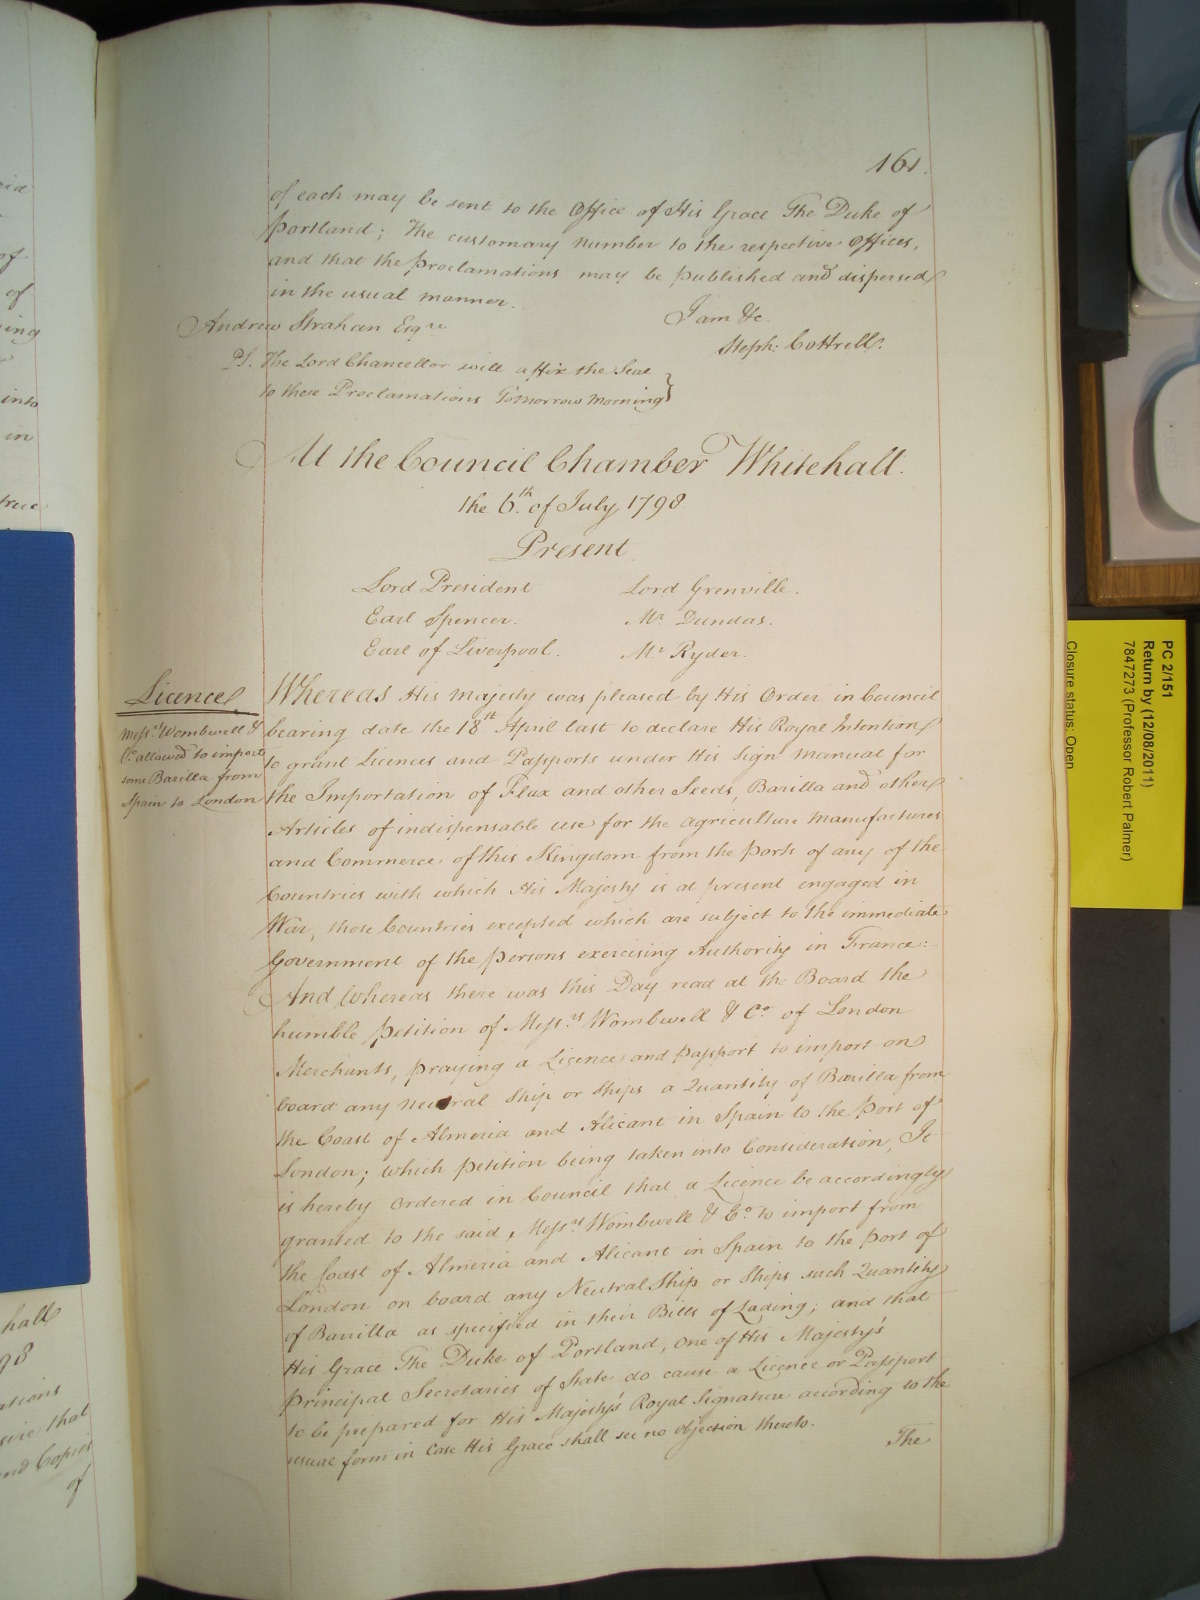 161.
of each may be sent to the Office of His Grace The Duke of
Portland; The customary number to the respective Offices,
and that the Proclamations may be published and dispersed
in the usual manner.
I am &c.
Andrew Strahan Esqre
Steph: Cottrell.
PS. The Lord Chancellor will affix the Seal
to these Proclamations Tomorrow Morning}
At the Council Chamber Whitehall.
the 6th of July 1798
Present
Lord President Lord Grenville.
Earl Spencer. Mr Dundas.
Earl of Liverpool. Mr Ryder.
Licence
Messrs Wombwell &
Co allowed to import
some Barilla from
Spain to London
Whereas His Majesty was pleased by His Order in Council
bearing date the 18th April last to declare His Royal Intention
to grant Licences and Passports under His Sign Manual for
the Importation of Flax and other Seeds, Barilla and other
Articles of indispensable use for the agriculture manufactures
and Commerce of this Kingdom from the Ports of any of the
Countries with which His Majesty is at present engaged in
War, those Countries excepted which are subject to the immediate
Government of the persons exercising Authority in France:
And Whereas there was this Day read at the Board the
humble Petition of Messrs Wombwell & Co of London
Merchants, praying a Licence and Passport to import on
board any neutral Ship or Ships a Quantity of Barilla from
the Coast of Almeria and Alicant in Spain to the Port of
London; which Petition being taken into Consideration, It
is hereby Ordered in Council that a Licence be accordingly
granted to the said Messrs Wombwell & Co to import from
the Coast of Almeria and Alicant in Spain to the Port of
London on board any Neutral Ship or Ships such Quantity
of Barilla as specified in their Bills of Lading; and that
His Grace The Duke of Portland, One of His Majesty's
Principal Secretaries of State do cause a Licence or Passport
to be prepared for His Majesty's Royal Signature according to the
usual form in case His Grace shall see no objection thereto.
The
PC 2/151
Return by (12/08/2011)
7847273 (Professor Robert Palmer)
Closure status: Open